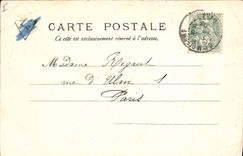 CARTE POSTALE
Ce côté est exclusivement réservé à l'adresse.
Madame Rigaut
rue d'Ulm 1
Paris